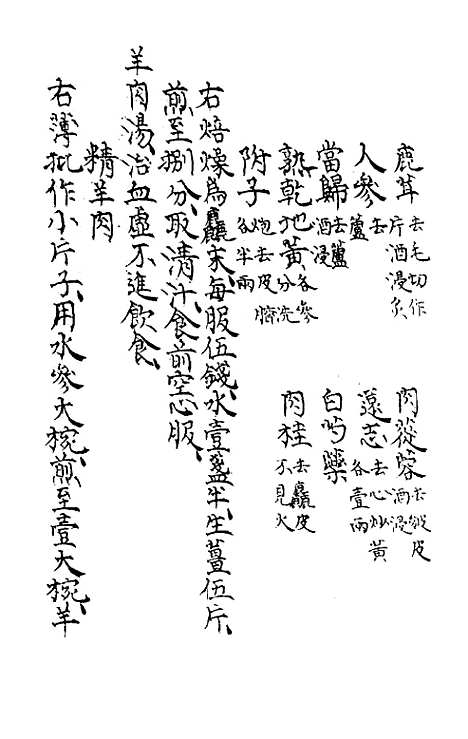 鹿茸去毛切作片酒浸炙 肉蓯蓉去皴皮酒浸
人參去蘆 遠志去心炒黃各壹兩
當歸去蘆酒浸 白芍藥
熟乾地黃分洗各參 肉桂去麤皮不見火
附子炮去皮臍各半兩
右焙燥為麤末每服伍錢水壹盞半生薑伍片
煎至捌分取清汁食前空心服
羊肉湯治血虛不進飲食
精羊肉
右薄批作小片子用水參大椀煎至壹大椀羊